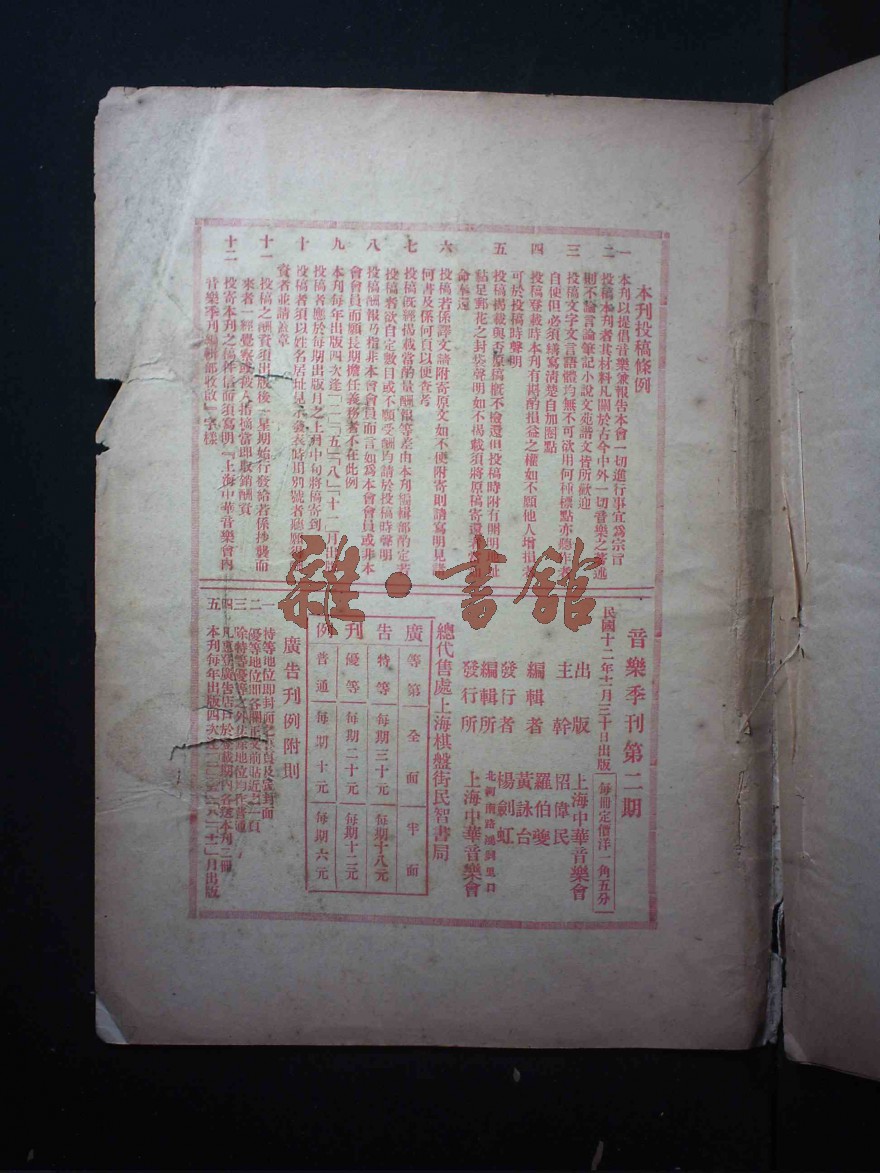 本刊投稿條例
一 本刊以提倡音樂兼報告本會一切進行事宜爲宗旨
二 投稿本刊者其材料凡關於古今中外一切音樂之著述
則不論言論筆記小說文苑譜文皆所歡迎
三 投稿文字文言語體均無不可欲用何種標點亦聽
自便但必須繕寫清楚自加圈點
四 投稿登載時本刊有斟酌損益之權如不願他人增損
可於投稿時聲明
五 投稿揭載與否原稿槪不檢還但投稿時附有開明
黏足郵花之封套聲明如不揭載須將原稿寄還
六 投稿若係譯文請附寄原文如不便附寄則請寫明見
何書及係何頁以便查考
七 投稿旣經揭載當酌量酬報等差由本刊編輯部酌定若
投稿者欲自定數目或不願受酬均請於投稿時聲明
八 投稿酬報乃指非本會會員而言如爲本會會員或非本
會會員而願長期擔任義務者不在此例
九 本刊每年出版四次逢「二」「五」「八」「十一」月出版
投稿者應於每期出版月之上月中旬將稿寄到
十 投稿者須以姓名居址見示發表時用別號者聽
資者並請蓋章
十一 投稿之酬資須出版後一星期始行發給若係抄襲而
來者一經覺察或被人指摘當即取銷酬資
十二 投寄本刊之稿件信面須寫明『上海中華音樂會內
音樂季刊編輯部收啟』字樣
音樂季刊第二期
民國十二年十一月三十日出版
每冊定價洋一角五分
出版 上海中華音樂會
主幹 招偉民
編輯者 羅伯夔
黃詠台
發行者 楊劍虹
編輯所 北河南路鴻興里口
發行所 上海中華音樂會
總代售處上海棋盤街民智書局
廣告刊例
等第 全面 半面
特等 每期三十元 每期十八元
優等 每期二十元 每期十二元
普通 每期十元 每期六元
廣告刊例附則
特等地位即封面之裏頁及底封面
二 優等地位即各圖正文前貼近之一頁
三 除特等優等之外其餘地位均作普通
四 凡惠登廣告店戶於登載期內各送本刊一冊
五 本刊每年出版四次逢二五八十一月出版
雜·書館